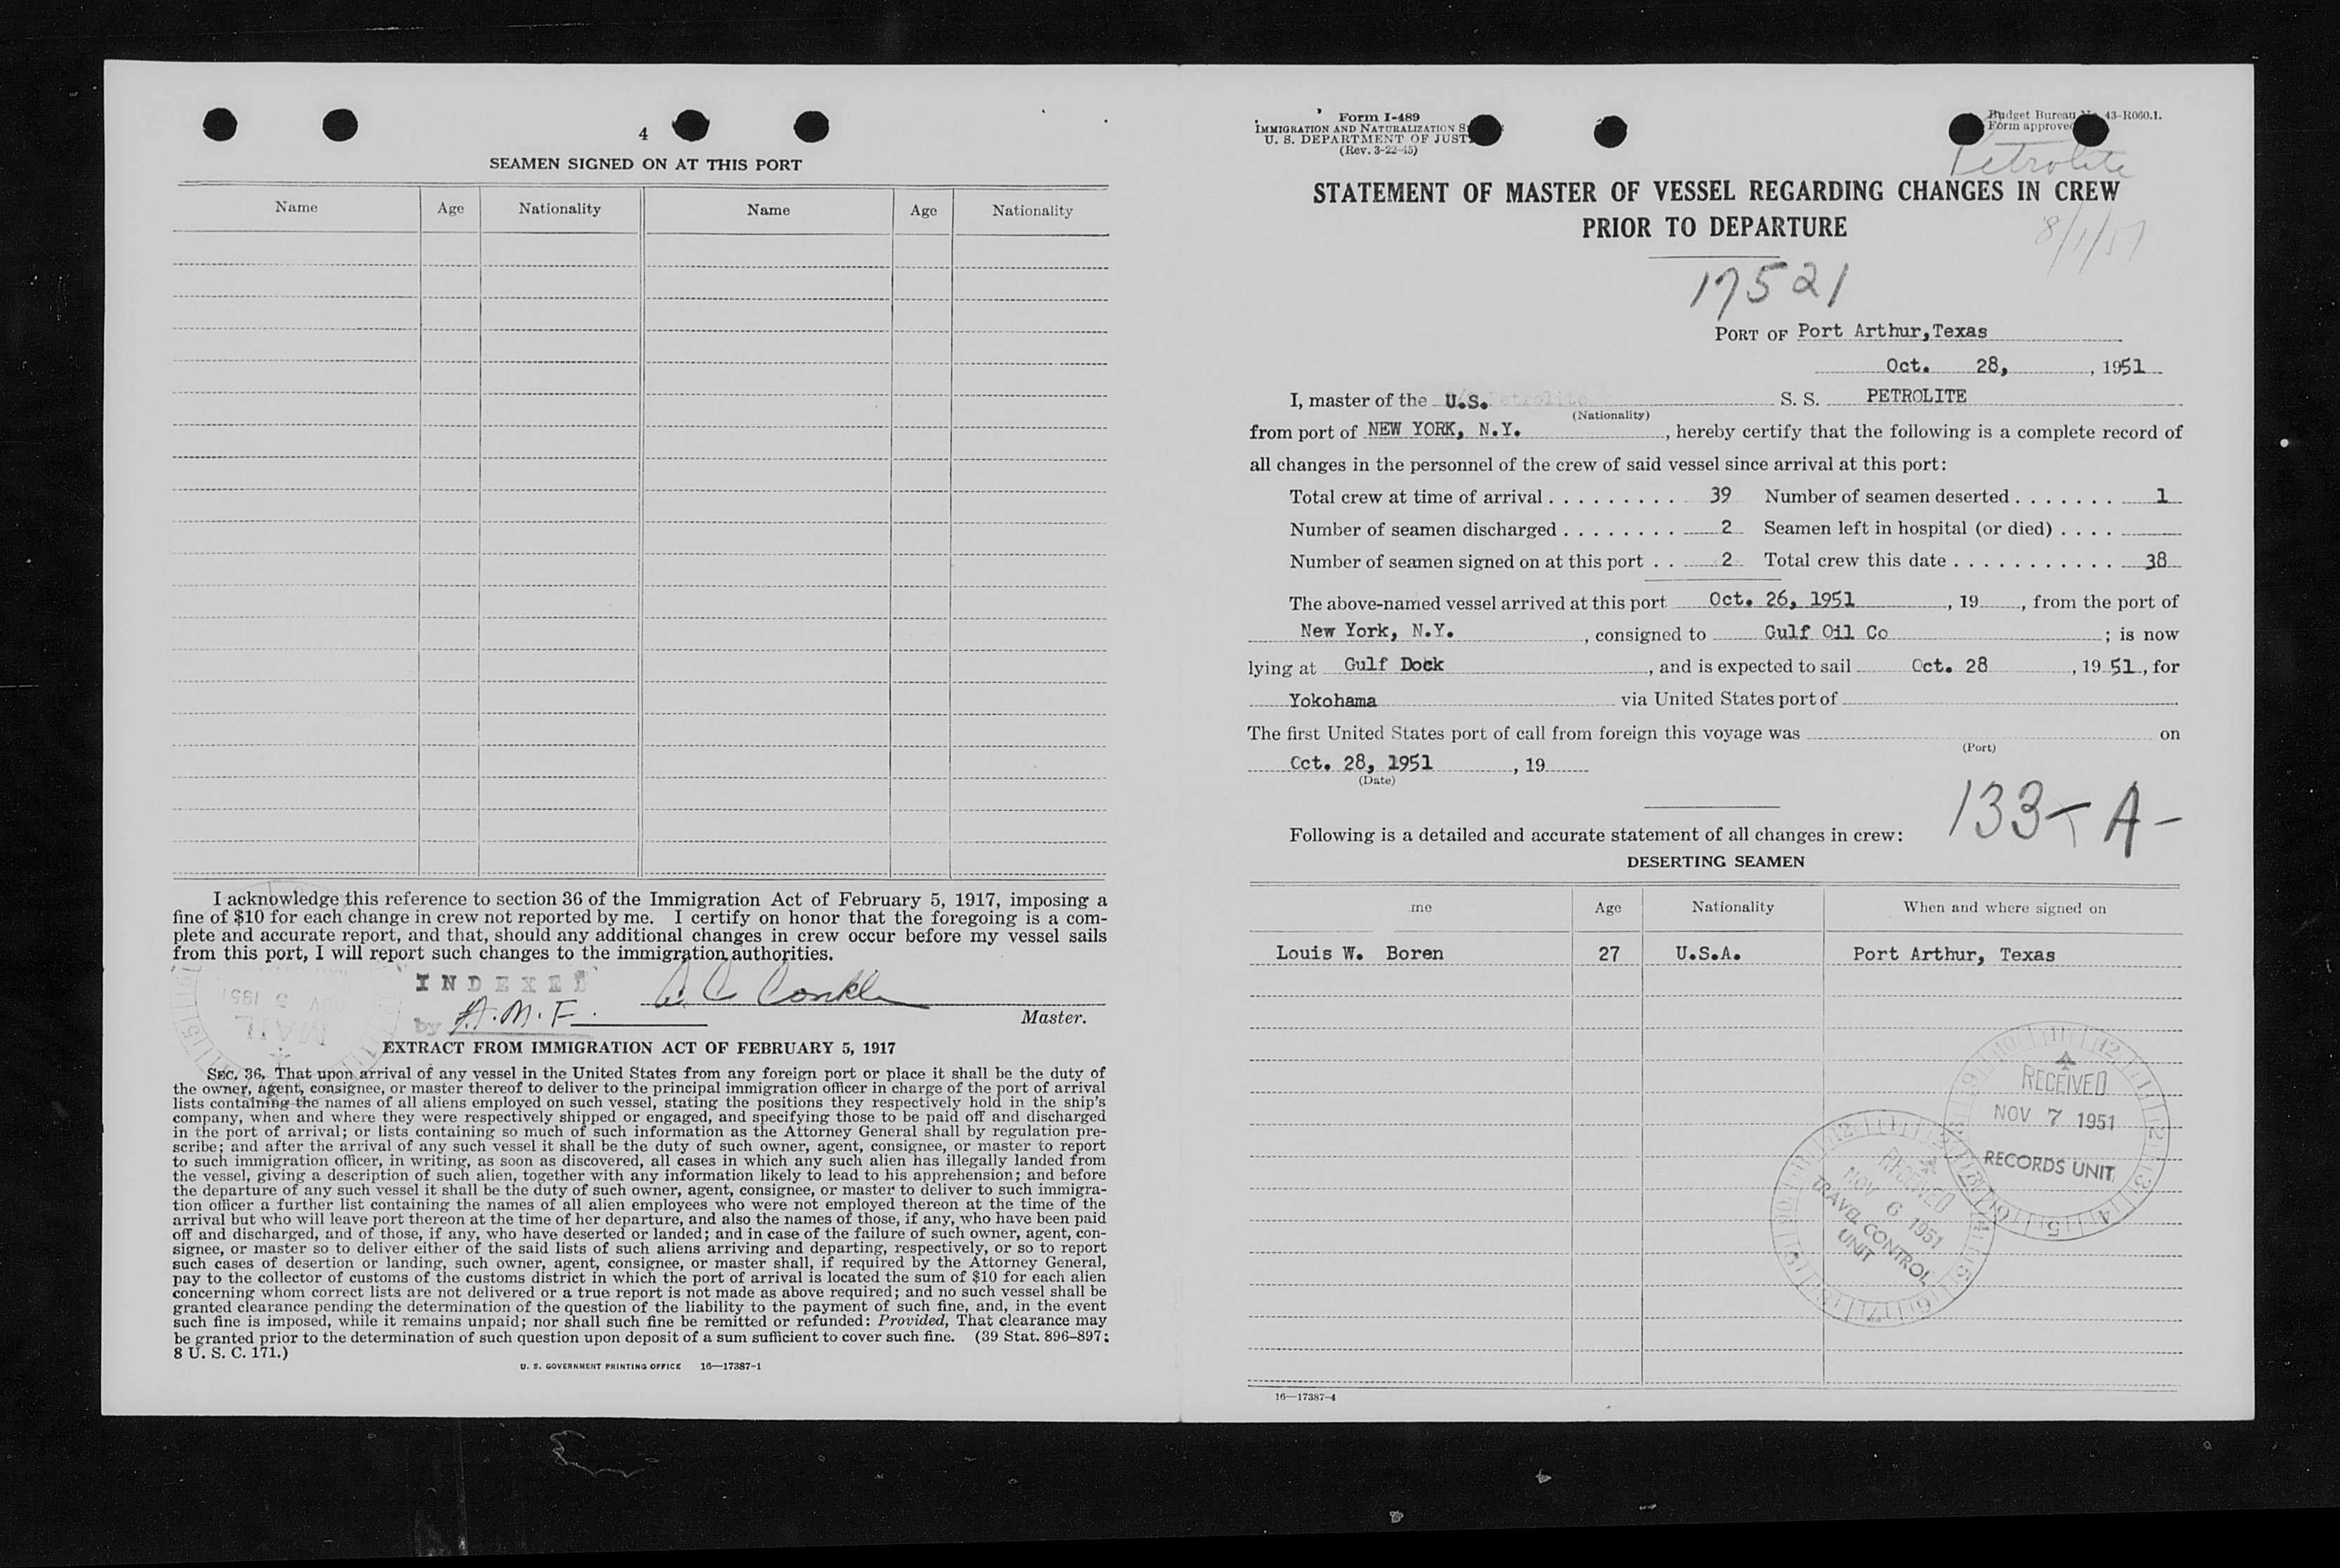 4
SEAMEN SIGNED ON AT THIS PORT
Name Age Nationality Name Age Nationality
I acknowledge this reference to section 36 of the Immigration Act of February 5, 1917, imposing a
fine of $10 for each change in crew not reported by me. I certify on honor that the foregoing is a com-
plete and accurate report, and that, should any additional changes in crew occur before my vessel sails
from this port, I will report such changes to the immigration authorities.
INDEXED
by A.M.F.
Master.
EXTRACT FROM IMMIGRATION ACT OF FEBRUARY 5, 1917
SEC. 36. That upon arrival of any vessel in the United States from any foreign port or place it shall be the duty of
the owner, agent, consignee, or master thereof to deliver to the principal immigration officer in charge of the port of arrival
lists containing the names of all aliens employed on such vessel, stating the positions they respectively hold in the ship's
company, when and where they were respectively shipped or engaged, and specifying those to be paid off and discharged
in the port of arrival; or lists containing so much of such information as the Attorney General shall by regulation pre-
scribe; and after the arrival of any such vessel it shall be the duty of such owner, agent, consignee, or master to report
to such immigration officer, in writing, as soon as discovered, all cases in which any such alien has illegally landed from
the vessel, giving a description of such alien, together with any information likely to lead to his apprehension; and before
the departure of any such vessel it shall be the duty of such owner, agent, consignee, or master to deliver to such immigra-
tion officer a further list containing the names of all alien employees who were not employed thereon at the time of the
arrival but who will leave port thereon at the time of her departure, and also the names of those, if any, who have been paid
off and discharged, and of those, if any, who have deserted or landed; and in case of the failure of such owner, agent, con-
signee, or master so to deliver either of the said lists of such aliens arriving and departing, respectively, or so to report
such cases of desertion or landing, such owner, agent, consignee, or master shall, if required by the Attorney General,
pay to the collector of customs of the customs district in which the port of arrival is located the sum of $10 for each alien
concerning whom correct lists are not delivered or a true report is not made as above required; and no such vessel shall be
granted clearance pending the determination of the question of the liability to the payment of such fine, and, in the event
such fine is imposed, while it remains unpaid; nor shall such fine be remitted or refunded: Provided, That clearance may
be granted prior to the determination of such question upon deposit of a sum sufficient to cover such fine. (39 Stat. 896–897;
8 U. S. C. 171.)
U. S. GOVERNMENT PRINTING OFFICE 16—17387-1
Form I-489
IMMIGRATION AND NATURALIZATION
U. S. DEPARTMENT OF
(Rev. 3-22-45)
Budget Bureau 43-R060.1.
Form approved
Petrolite
STATEMENT OF MASTER OF VESSEL REGARDING CHANGES IN CREW
PRIOR TO DEPARTURE
8/1/51
17521
PORT OF Port Arthur, Texas
Oct. 28, , 1951
I, master of the U.S. S. S. PETROLITE
(Nationality)
from port of NEW YORK, N.Y. , hereby certify that the following is a complete record of
all changes in the personnel of the crew of said vessel since arrival at this port:
Total crew at time of arrival . . . . . . . . . 39 Number of seamen deserted . . . . . . . 1
Number of seamen discharged . . . . . . . . 2 Seamen left in hospital (or died) . . . .
Number of seamen signed on at this port . . 2 Total crew this date . . . . . . . . . . . 38
The above-named vessel arrived at this port Oct. 26, 1951 , 19 , from the port of
New York, N.Y. , consigned to Gulf Oil Co ; is now
lying at Gulf Dock , and is expected to sail Oct. 28 , 19 51 , for
Yokohama via United States port of
The first United States port of call from foreign this voyage was on
(Port)
Oct. 28, 1951 , 19
(Date)
133- A-
Following is a detailed and accurate statement of all changes in crew:
DESERTING SEAMEN
me Age Nationality When and where signed on
Louis W. Boren 27 U.S.A. Port Arthur, Texas
RECEIVED
NOV 7 1951
RECORDS UNIT
RECEIVED
NOV 6 1951
TRAVEL CONTROL
UNIT
16—17387-4